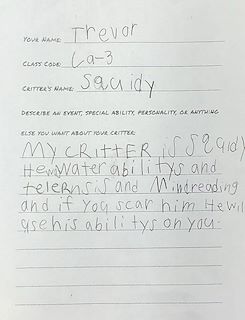 YOUR NAME: Trevor
CLASS CODE: La-3
CRITTER'S NAME: Squidy
DESCRIBE AN EVENT, SPECIAL ABILITY, PERSONALITY, OR ANYTHING
ELSE YOU WANT ABOUT YOUR CRITTER:
MY CRITTER is Squidy
He water abilitys and
teleknsis and Mindreading
and if you scar him He wil
use his abilitys on you.